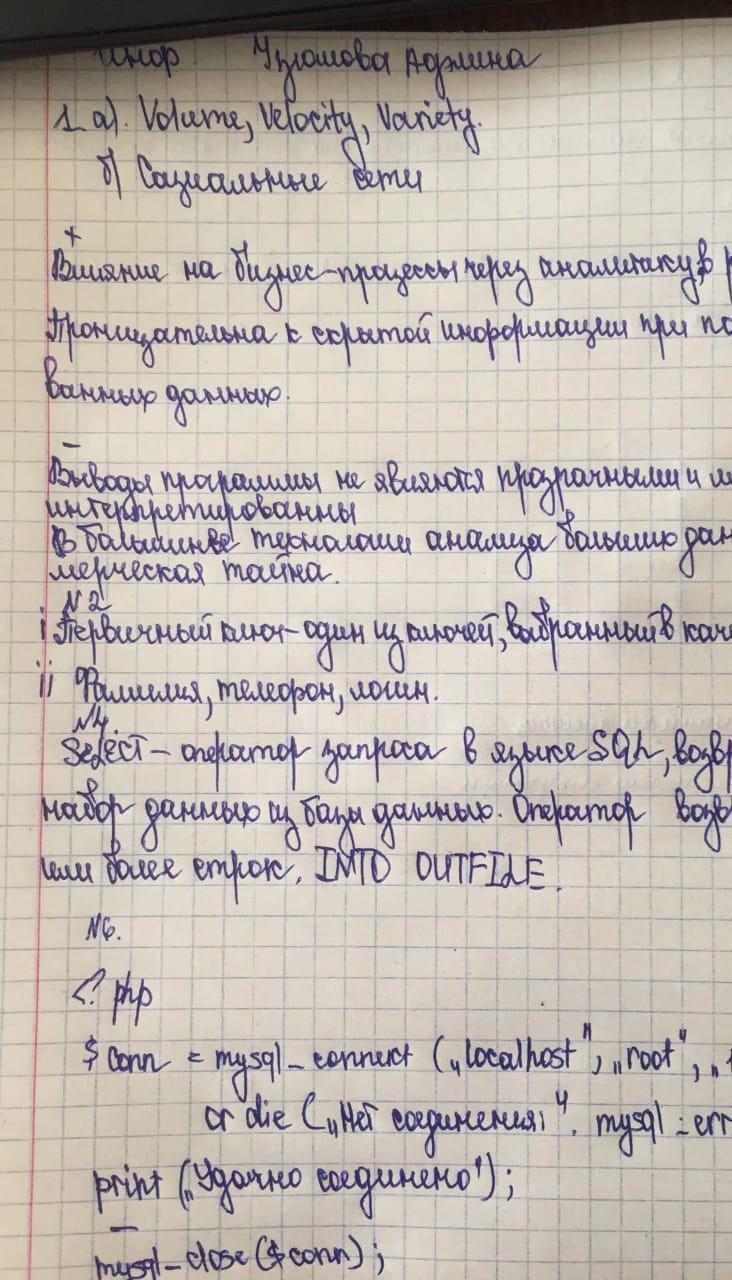 Минор Узюмова Админа
1 а). Volume, Velocity, Variety.
б) Социальные сети
+
Влияние на бизнес-процессы через аналитику, в р
Проницательна к скрытой информации при по
ванных данных.
—
Выводы программы не являются прозрачными и
интерпретированны
В большинве технологии анализа больших дан
мерческая тайна.
N2
i Первичный ключ-один из ключей, выбранный в кач
ii Фамилия, телефон, логин.
N4.
Select – оператор запроса в языке SQL, возвр
набор данных из базы данных. Оператор возв
или более строк. INTO OUTFILE.
N6.
<? php
$ conn = mysql_connect („localhost", „root", „
or die („Нет соединения:". mysql_err
print („Удачно соединено");
—
mysql_close($conn);